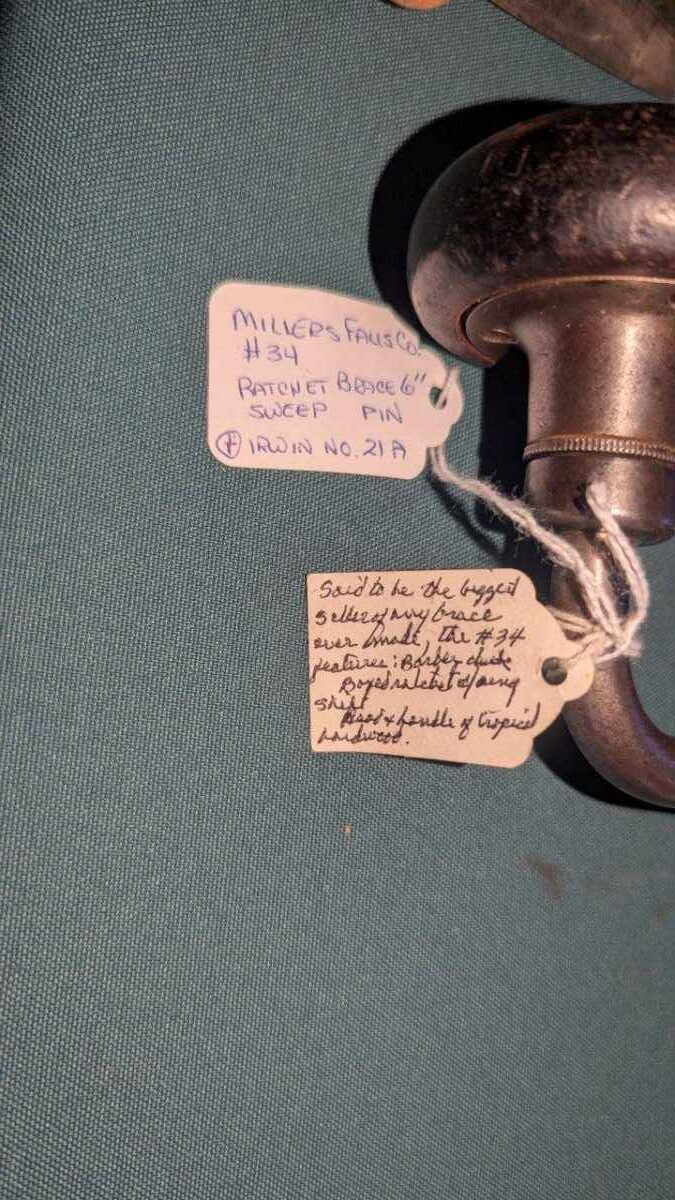 MILLERS FALLS CO.
#34
RATCHET BRACE 6"
SWEEP PIN
IRWIN NO. 21A
Said to be the biggest
seller of any brace
ever made, the #34
features: Barber chuck
Boxed ratchet w/ ring
shift
Head & handle of tropical
hardwood.